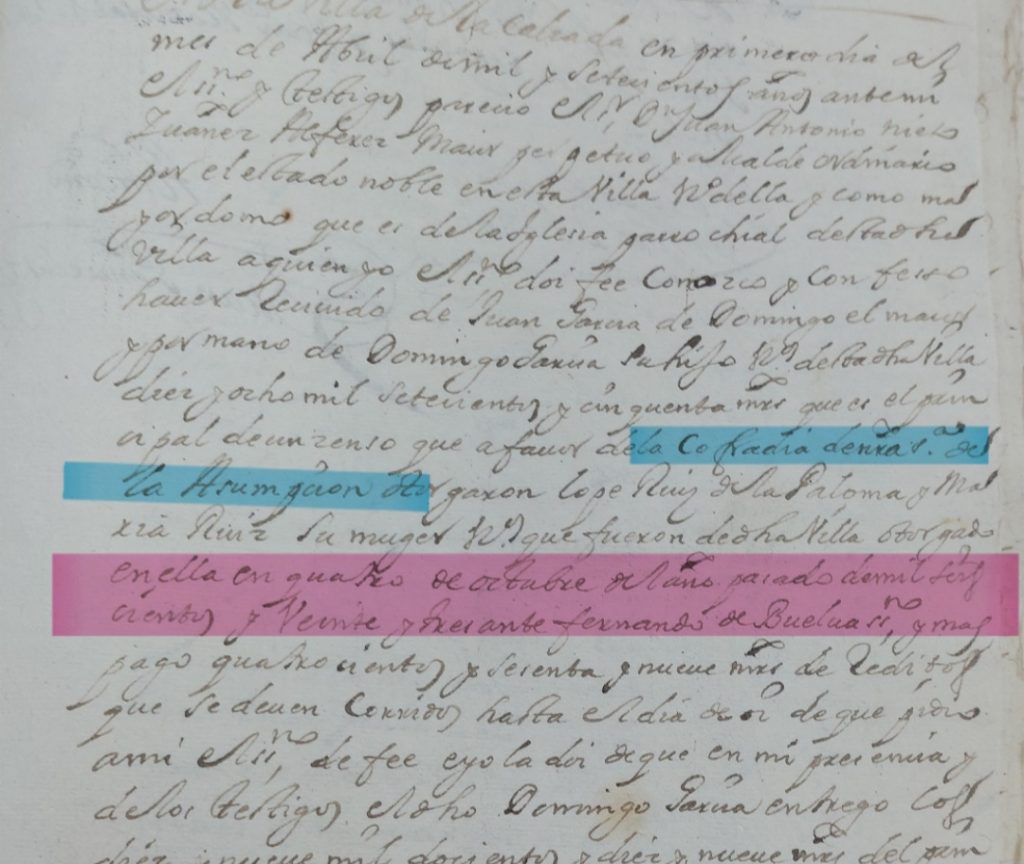 Villa de la Calzada en primero dia del
mes de Abril de mil y setecientos años ante mi
el ss.no y testigos parecio el s.r D.n Juan Antonio nieto
Yuañez Alferez Maior perpetuo y alcalde ordinario
por el estado noble en esta Villa V.o della y como mal
yordomo que es de la Iglesia parrochial desta dha
Villa a quien yo el ss.no doi fee Conozco y Confeso
hauer Reciuido de Juan Garcia de Domingo el maior
y por mano de Domingo Garcia su hijo V.o desta dha Villa
diez y ocho mil setecientos y cinquenta mrs que es el prin
cipal de un zenso que a fauor de la Cofradia de nra s.a de
la Asumpcion otorgaron lope Ruiz de la Paloma y Ma
ria Ruiz su muger V.os que fueron de dha Villa otorgado
en ella en quatro de octubre del año pasado de mil seis
cientos y Veinte y tres ante fernando de Buelua ss.no y mas
pago quatrocientos y sesenta y nueue mrs de Reditos
que se deuen Corridos hasta el dia de oi de que pidio
a mi el ss.no de fee e yo la doi de que en mi presencia y
de los testigos el dho Domingo Garcia entrego los
diez y nueue mil docientos y diez y nueue mrs del